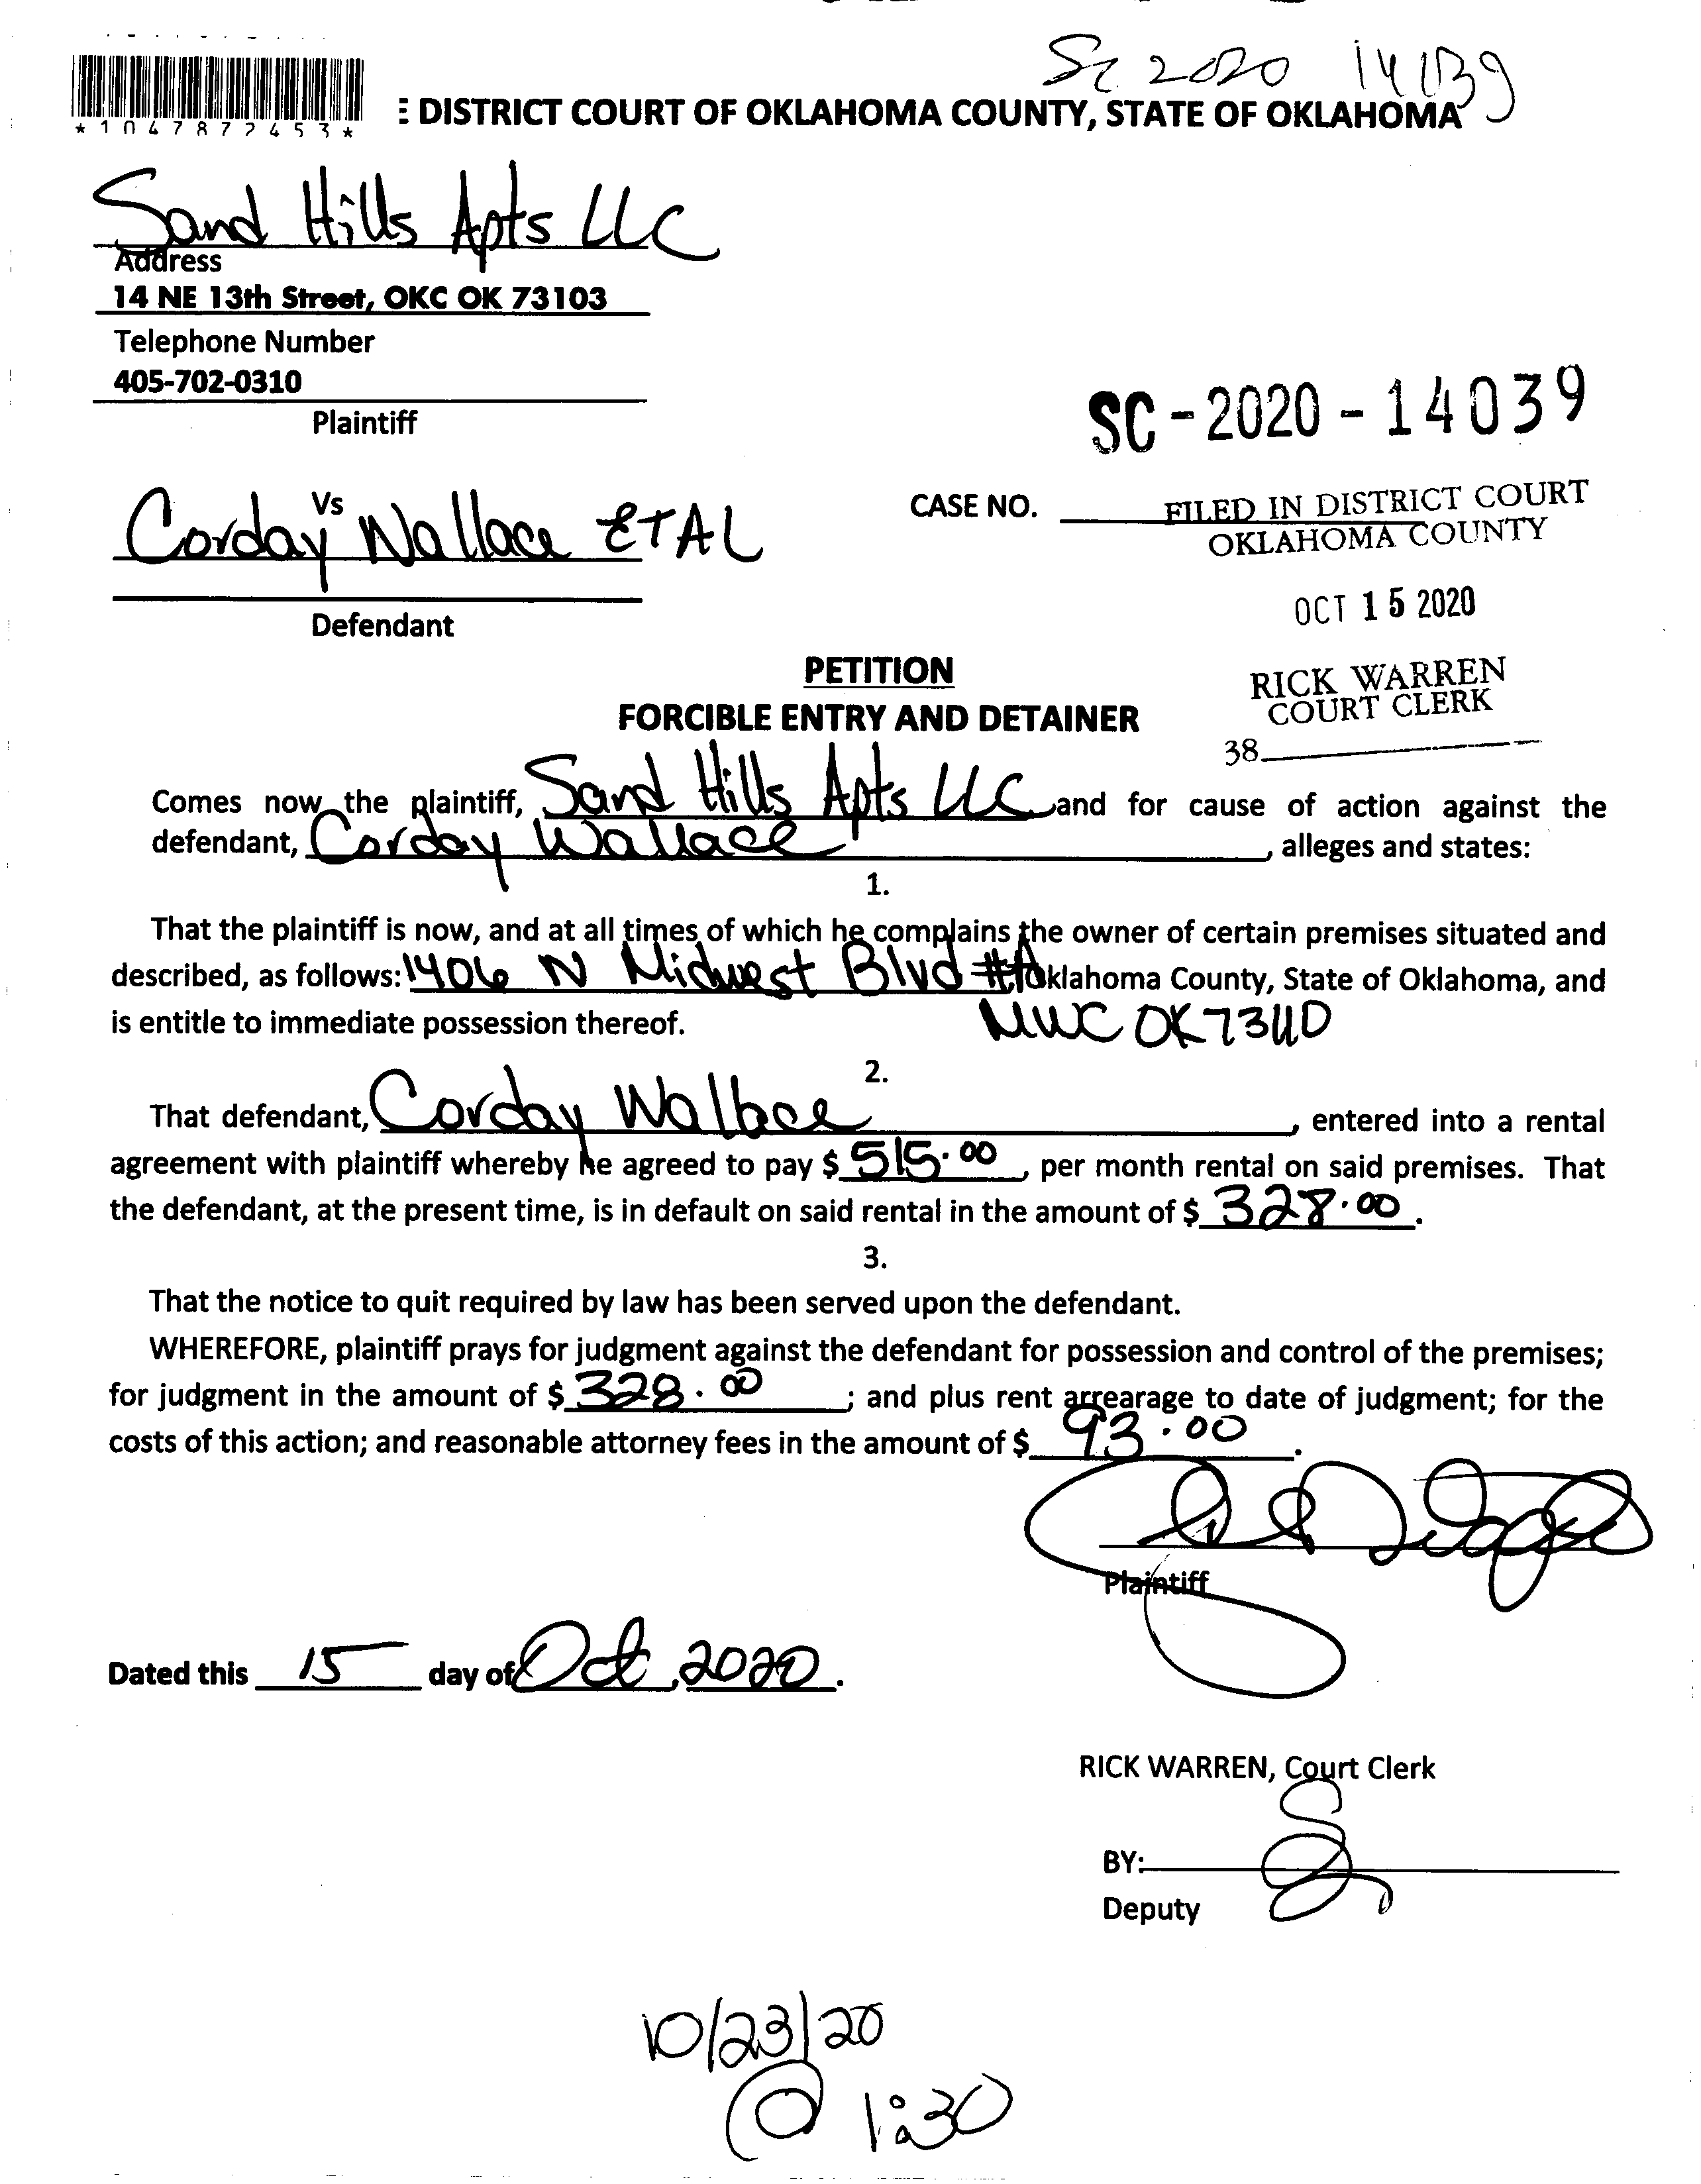 Sc 2020 14039
*1047872453*
E DISTRICT COURT OF OKLAHOMA COUNTY, STATE OF OKLAHOMA
Sand Hills Apts LLC
Address
14 NE 13th Street, OKC OK 73103
Telephone Number
405-702-0310
Plaintiff
SC-2020-14039
Vs
Corday Wallace ETAL
CASE NO.
FILED IN DISTRICT COURT
OKLAHOMA COUNTY
OCT 15 2020
Defendant
PETITION
RICK WARREN
COURT CLERK
FORCIBLE ENTRY AND DETAINER
38
Comes now the plaintiff, Sand Hills Apts LLC and for cause of action against the
defendant, Corday Wallace, alleges and states:
1.
That the plaintiff is now, and at all times of which he complains the owner of certain premises situated and
described, as follows: 1406 N Midwest Blvd #A Oklahoma County, State of Oklahoma, and
is entitle to immediate possession thereof. MWC OK 73110
2.
That defendant, Corday Wallace, entered into a rental
agreement with plaintiff whereby he agreed to pay $ 515.00, per month rental on said premises. That
the defendant, at the present time, is in default on said rental in the amount of $ 328.00.
3.
That the notice to quit required by law has been served upon the defendant.
WHEREFORE, plaintiff prays for judgment against the defendant for possession and control of the premises;
for judgment in the amount of $ 328.00; and plus rent arrearage to date of judgment; for the
costs of this action; and reasonable attorney fees in the amount of $ 93.00.
Plaintiff
Dated this 15 day of Oct, 2020.
RICK WARREN, Court Clerk
BY:
Deputy
10/23/20
@ 1:30